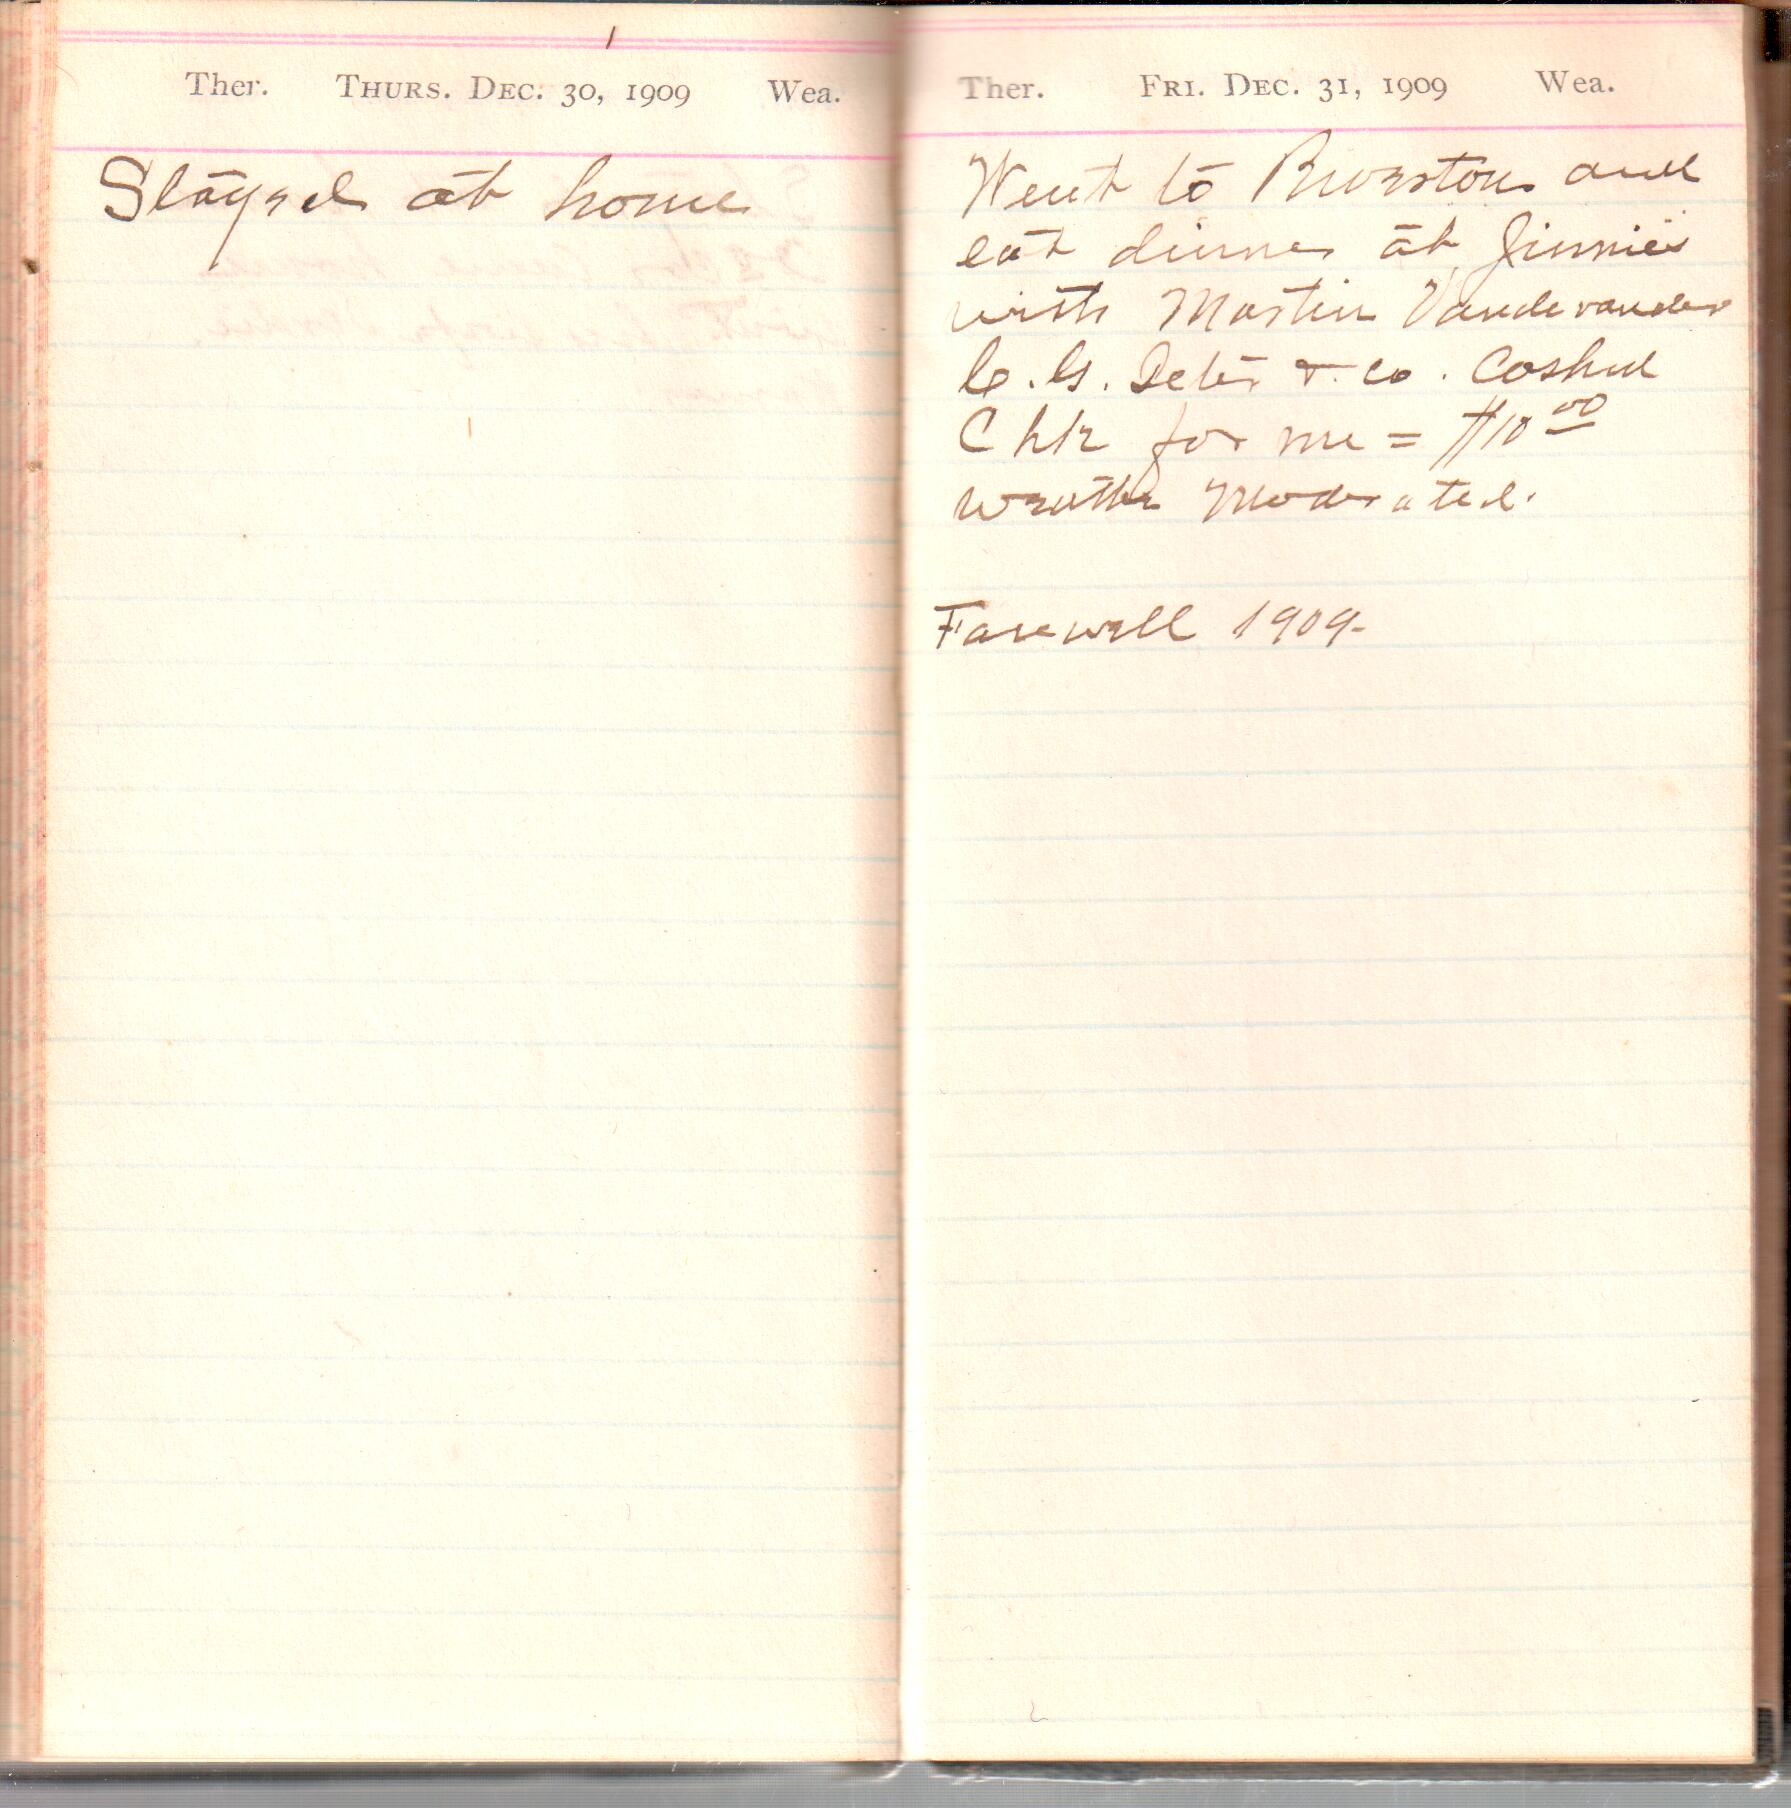 Ther. THURS. DEC. 30, 1909 Wea.
Stayed at home
Ther. FRI. DEC. 31, 1909 Wea.
Went to and
eat dinner at Jinnies
with Martin Vandevander
C. G. & co. Cashed
Chk for me = $10 00
weather Moderated.
Farewell 1909-